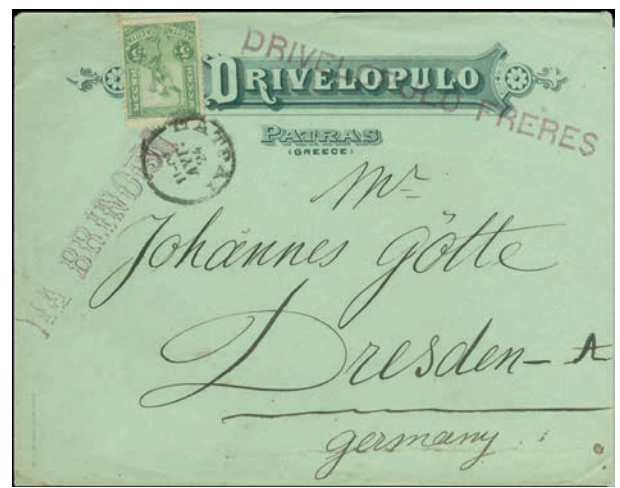 DRIVELOPULO FRERES
DRIVELOPULO
PATRAS
(GREECE)
VIA BRINDISI
Mr
Johannes Götte
Dresden-A
germany